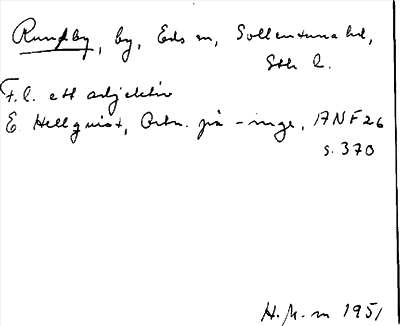 Rundby, by, Eds sn, Sollentuna hd,
Sth l.
F.l. ett adjektiv
E. Hellquist, Ortn. på -inge, ANF 26
s. 370
H. M-m 1951